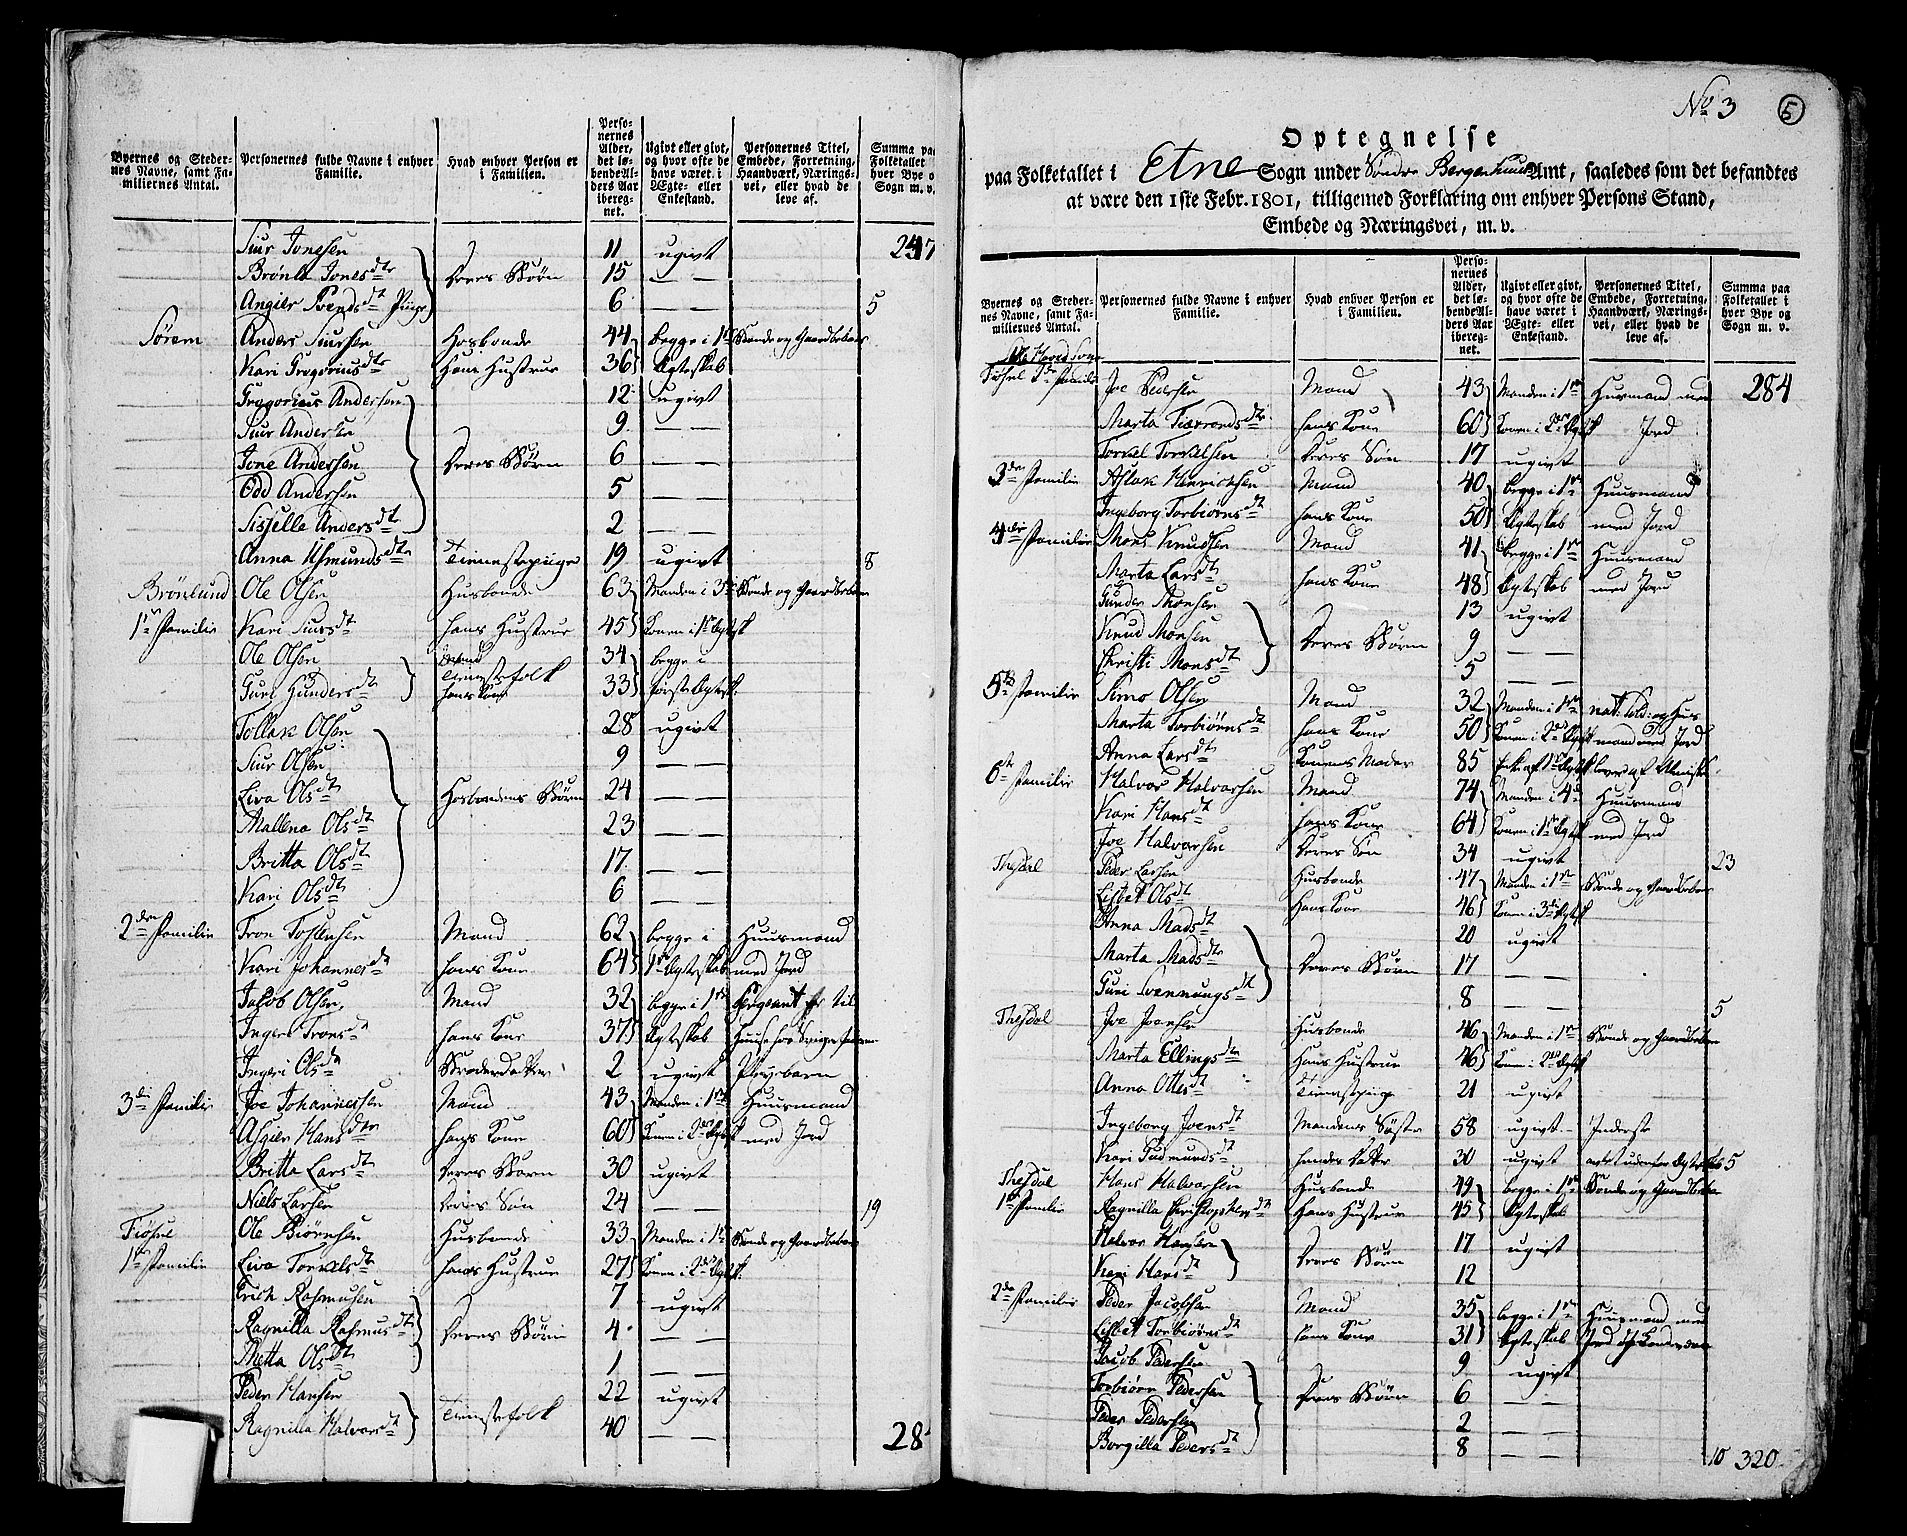 Byernes og Steder-nes Navne, samt Fa-miliernes Antal. | Personernes fulde Navne i enhver Familie. | Hvad enhver Person er i Familien. | Perso-nernes Alder, det lø-bende Al-ders Aar ibereg-net. | Ugivt eller givt, og hvor ofte de have været i Ægte- eller Enkestand. | Personernes Titel, Embede, Forretning, Haandværk, Nærings-vei, eller hvad de leve af. | Summa paa Folketallet i hver Bye og Sogn m. v.
Siur Jonesen 11 ugivt 247
Brønla Jones dtr Deres Børn 15 — —
Svends dt Piige 6 — — 5
Sørem Anders Siursen Hosbonde 44 begge i 1ste Bonde og Gaardbeboer
Kari Gregorius dt Hans Hustrue 36 Ægteskab
Gregorius Andersen 12 ugivt
Siur Andersen 9 — —
Jone Andersen Deres Børn 6 — —
Odd Andersen 5 — —
Sisselle Anders dt 2 — —
Anna Asmunds dtr Tienestepiige 19 ugivt 8
Brønlund Ole Olsen Husbonde 63 Manden i 3die Bonde og Gaardbeboer
1te Familie Kari Siurs dt hans Hustrue 45 Konen i 1te Ægtsk
Ole Olsen Mand Tienestefolk 34 begge i
Guri Gunders dt hans Kone 33 første Ægtesk.
Tollak Olsen 28 ugivt
Siur Olsen 9 — —
Liva Ols dt Hosbondens Børn 24 — —
Mallena Ols dt 23 — —
Britta Ols dt 17 — —
Kari Ols dt 6 — —
2den Familie Tron Tostensen Mand 62 begge i Huusmand
Kari Johannes dt hans Kone 64 1te Ægteskab med Jord
Jacob Olsen Mand 32 begge i 1ste Sergeant
Ingeri Trons dt hans Kone 37 Ægteskab
Ingeri Ols dtr Broderdatter 2 ugivt Pleyebarn
3die Familie Joe Johannessen Mand 43 Manden i 1ste Huusmand
Asgier Hans dtr hans Kone 60 Konen i 2det Ægtsk med Jord
Britta Lars dt Deres Børn 30 ugivt
Niels Larsen Deres Søn 24 — — 19
Tiøsne Ole Biørnsen Husbonde 33 Manden i 1ste Bonde og Gaardbeboer
1te Familie Liva Torkels dt hans Hustrue 27 Konen i 2det Ægtesk.
Erich Rasmusen 7 ugivt
Ragnilla Rasmus dt Deres Børn 4 — —
Metta Ols dt 1 — —
Peder Hansen 22 ugivt
Ragnilla Halvors dt Tienestefolk 40 — — 28
No 3 5
Optegnelse
paa Folketallet i Etne Sogn under Søndre Bergenhuus Amt, saaledes som det befandtes
at være den 1ste Febr. 1801, tilligemed Forklaring om enhver Persons Stand,
Embede og Næringsvei, m. v.
Byernes og Steder-nes Navne, samt Fa-miliernes Antal. | Personernes fulde Navne i enhver Familie. | Hvad enhver Person er i Familien. | Perso-nernes Alder, det lø-bende Al-ders Aar ibereg-net. | Ugivt eller givt, og hvor ofte de have været i Ægte- eller Enkestand. | Personernes Titel, Embede, Forretning, Haandværk, Nærings-vei, eller hvad de leve af. | Summa paa Folketallet i hver Bye og Sogn m. v.
Tiøsne 2den Familie Joe Pedersen Mand 43 Manden i 1ste Huusmand med 284
Marta Tiærrands dtr hans Kone 60 Konen i 2det Ægtsk Jord
Torkel Torkelsen Deres Søn 17 ugivt
3die Familie Aslak Henrichsen Mand 40 begge i 1ste Huusmand
Ingeborg Torbiørns dt hans Kone 50 Ægteskab med Jord
4die Familie Mons Knudsen Mand 41 begge i 1ste Huusmand
Marta Lars dt hans Kone 48 Ægteskab med Jord
Gunder Monsen 13 ugivt
Knud Monsen Deres Børn 9 — —
Christi Mons dt 5 — —
5te Familie Simo Olsen Mand 32 Manden i 1ste nat: Sold: og Huus
Marta Torbiørns dt hans Kone 50 Konen i 2det Ægtsk mand med Jord
Anna Lars dt Konens Moder 85 Enke af 1te Ægtsk lever af Almisse
6te Familie Halvor Halvorsen Mand 74 Manden i 4de Huusmand
Kari Hans dt hans Kone 64 Konen i 1te Ægtsk med Jord
Joe Halvorsen Deres Søn 34 ugivt 23
Thesdal Peder Larsen Husbonde 47 Manden i 1ste Bonde og Gaardbeboer
Lisbet Ols dt Hans Kone 46 Konen i 3die Ægtsk
Anna Mads dt 20 ugivt
Marta Mads dtr Deres Børn 17 — —
Guri Svennungs dt 8 — — 5
Thesdal Joe Joensen Husbonde 46 Manden i 1ste Bonde og Gaardbeboer
Marta Ellings dtr Hans Hustrue 46 Konen i 2det Ægtsk
Anna Ottes dt Tienistpiige 21 ugivt
Ingeborg Joens dt Mandens Søster 58 ugivt Inderste
Kari Gudmunds dt hendes Datter 30 ugivt avlet udenfor Ægteskab 5
Thesdal Hans Halvorsen Husbonde 49 begge i 1ste Bonde og Gaardbeboer
1te Familie Ragnilla Christophers dt Hans Hustrue 45 Ægteskab
Halvor Hansen 17 ugivt
Kari Hans dt Deres Børn 12
2de Familie Peder Jacobsen Mand 35 begge i 1ste Huusmand med
Lisbet Torbiørns dt hans Kone 31 Ægteskab Jord
Jacob Pedersen 9 ugivt
Torbiørn Pedersen Deres Børn 6 — —
Peder Pedersen 2 — —
Borgilla Peders dt 8 — — 10 320